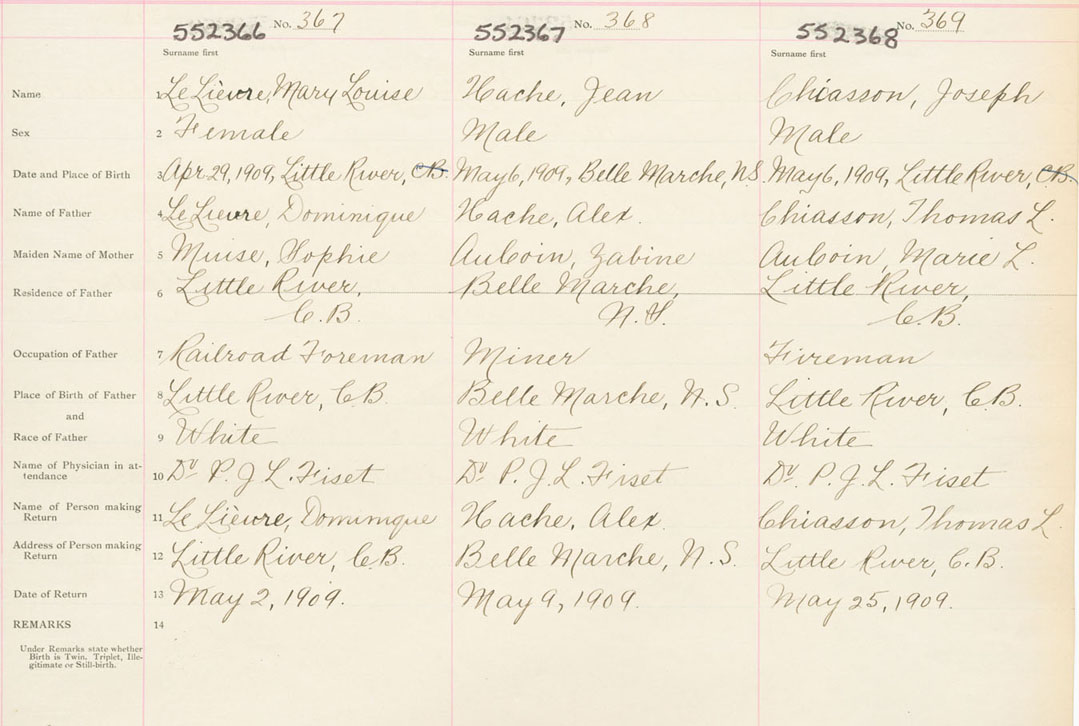 552366 No. 367 552367 No. 368 552368 No. 369
Surname first Surname first Surname first
Name 1 Le Lièvre, Mary Louise Hache, Jean Chiasson, Joseph
Sex 2 Female Male Male
Date and Place of Birth 3 Apr. 29, 1909, Little River, C.B. May 6, 1909, Belle Marche, N.S. May 6, 1909, Little River, C.B.
Name of Father 4 Le Lievre, Dominique Hache, Alex. Chiasson, Thomas L.
Maiden Name of Mother 5 Muise, Sophie AuCoin, Zabine AuCoin, Marie L.
Residence of Father 6 Little River, Belle Marche, Little River,
C.B. N.S. C.B.
Occupation of Father 7 Railroad Foreman Miner Fireman
Place of Birth of Father 8 Little River, C.B. Belle Marche, N.S. Little River, C.B.
and
Race of Father 9 White White White
Name of Physician in at-
tendance 10 Dr P. J. L. Fiset Dr. P. J. L. Fiset Dr. P. J. L. Fiset
Name of Person making
Return 11 Le Lièvre, Dominique Hache, Alex. Chiasson, Thomas L.
Address of Person making
Return 12 Little River, C.B. Belle Marche, N.S. Little River, C.B.
Date of Return 13 May 2, 1909. May 9, 1909. May 25, 1909.
REMARKS 14
Under Remarks state whether
Birth is Twin, Triplet, Ille-
gitimate or Still-birth.